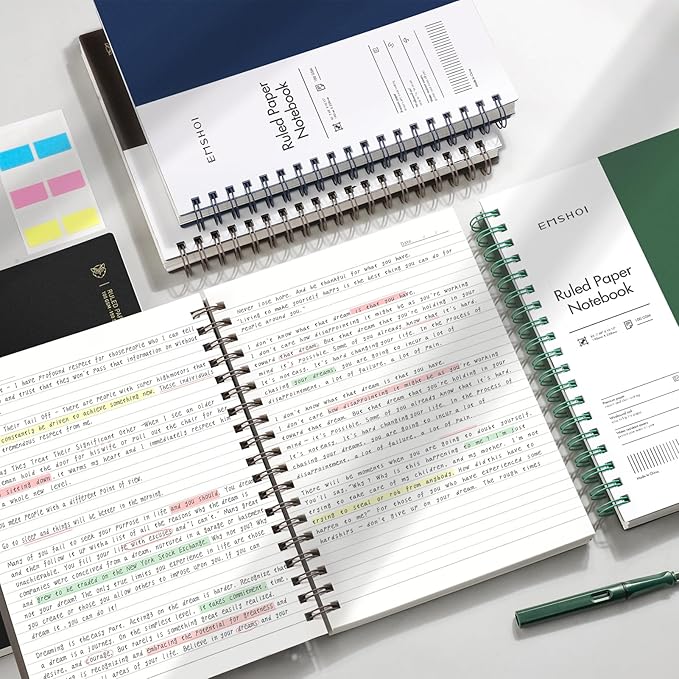 EMSHOI
Ruled Paper
Notebook
EMSHOI
Ruled Paper
Notebook
Made in China
RULED PA
Date
Never lose hope. And be thankful for what you have.
Trying to make yourself happy is the best thing you can do for
people around you."
I don't know what that dream is that you have.
I don't care how disappointing it might be as you're working
toward that dream. But that dream that you're holding in your
mind – it's possible. Some of you already know that it's hard.
It's not easy. It's hard changing your life. In the process of
chasing your dreams, you are going to incur a lot of
disappointment. a lot of failure. a lot of Pain.
I don't know what that dream is that you have.
I don't care how disappointing it might be as you're working
toward that dream. But that dream that you're holding in your
mind – it's possible. Some of you already know that it's hard.
It's not easy. It's hard changing your life. In the process of
chasing your dreams, you are going to incur a lot of
disappointment. a lot of failure. a lot of Pain.
There will be moments when you are going to doubt yourself.
You'll say, "Why? Why is this happening to me? I'm just
trying to take care of my children, and my mother. I'm not
trying to steal or rob from anybody. How did this have to
happen to me?" For those of you who have experienced some
hardships – don't give up on your dream. The rough times
– I have profound respect for those people who I can tell
and trust that they won't pass that information on without
Their Tail Off – There are people with super high morals that
constantly be driven to achieve something new. These individuals
tremendous respect from me.
They Treat Their Significant Other – When I see an older
man hold the door for his wife or pull out the chair for her
sitting down, it warms my heart and I immediately respect him
a whole new level.
meet people with a different point of view.
Go to sleep and things will be better in the morning.
Many of you fail to seek your purpose in life and you should. You dream
and then follow it up with a list of all the reasons why the dream is
unachievable. You fill your life with excuses and "I can't." Many great
companies were conceived from a dream, nurtured in a garage or workshop
and grew to be traded on the New York Stock Exchange. Why not you? Why
not your dream? The only true limits you experience in life are those
you create or those you allow others to impose upon you. If you can
dream it, you can do it!
Dreaming is the easy part. Acting on the dream is harder. Recognize that
a dream is a journey. On the simplest level, it takes commitment, time,
desire, and courage. But rarely is something great easily realized.
is recognizing and embracing the potential for greatness and
all areas of your life. Believe in your dreams and your